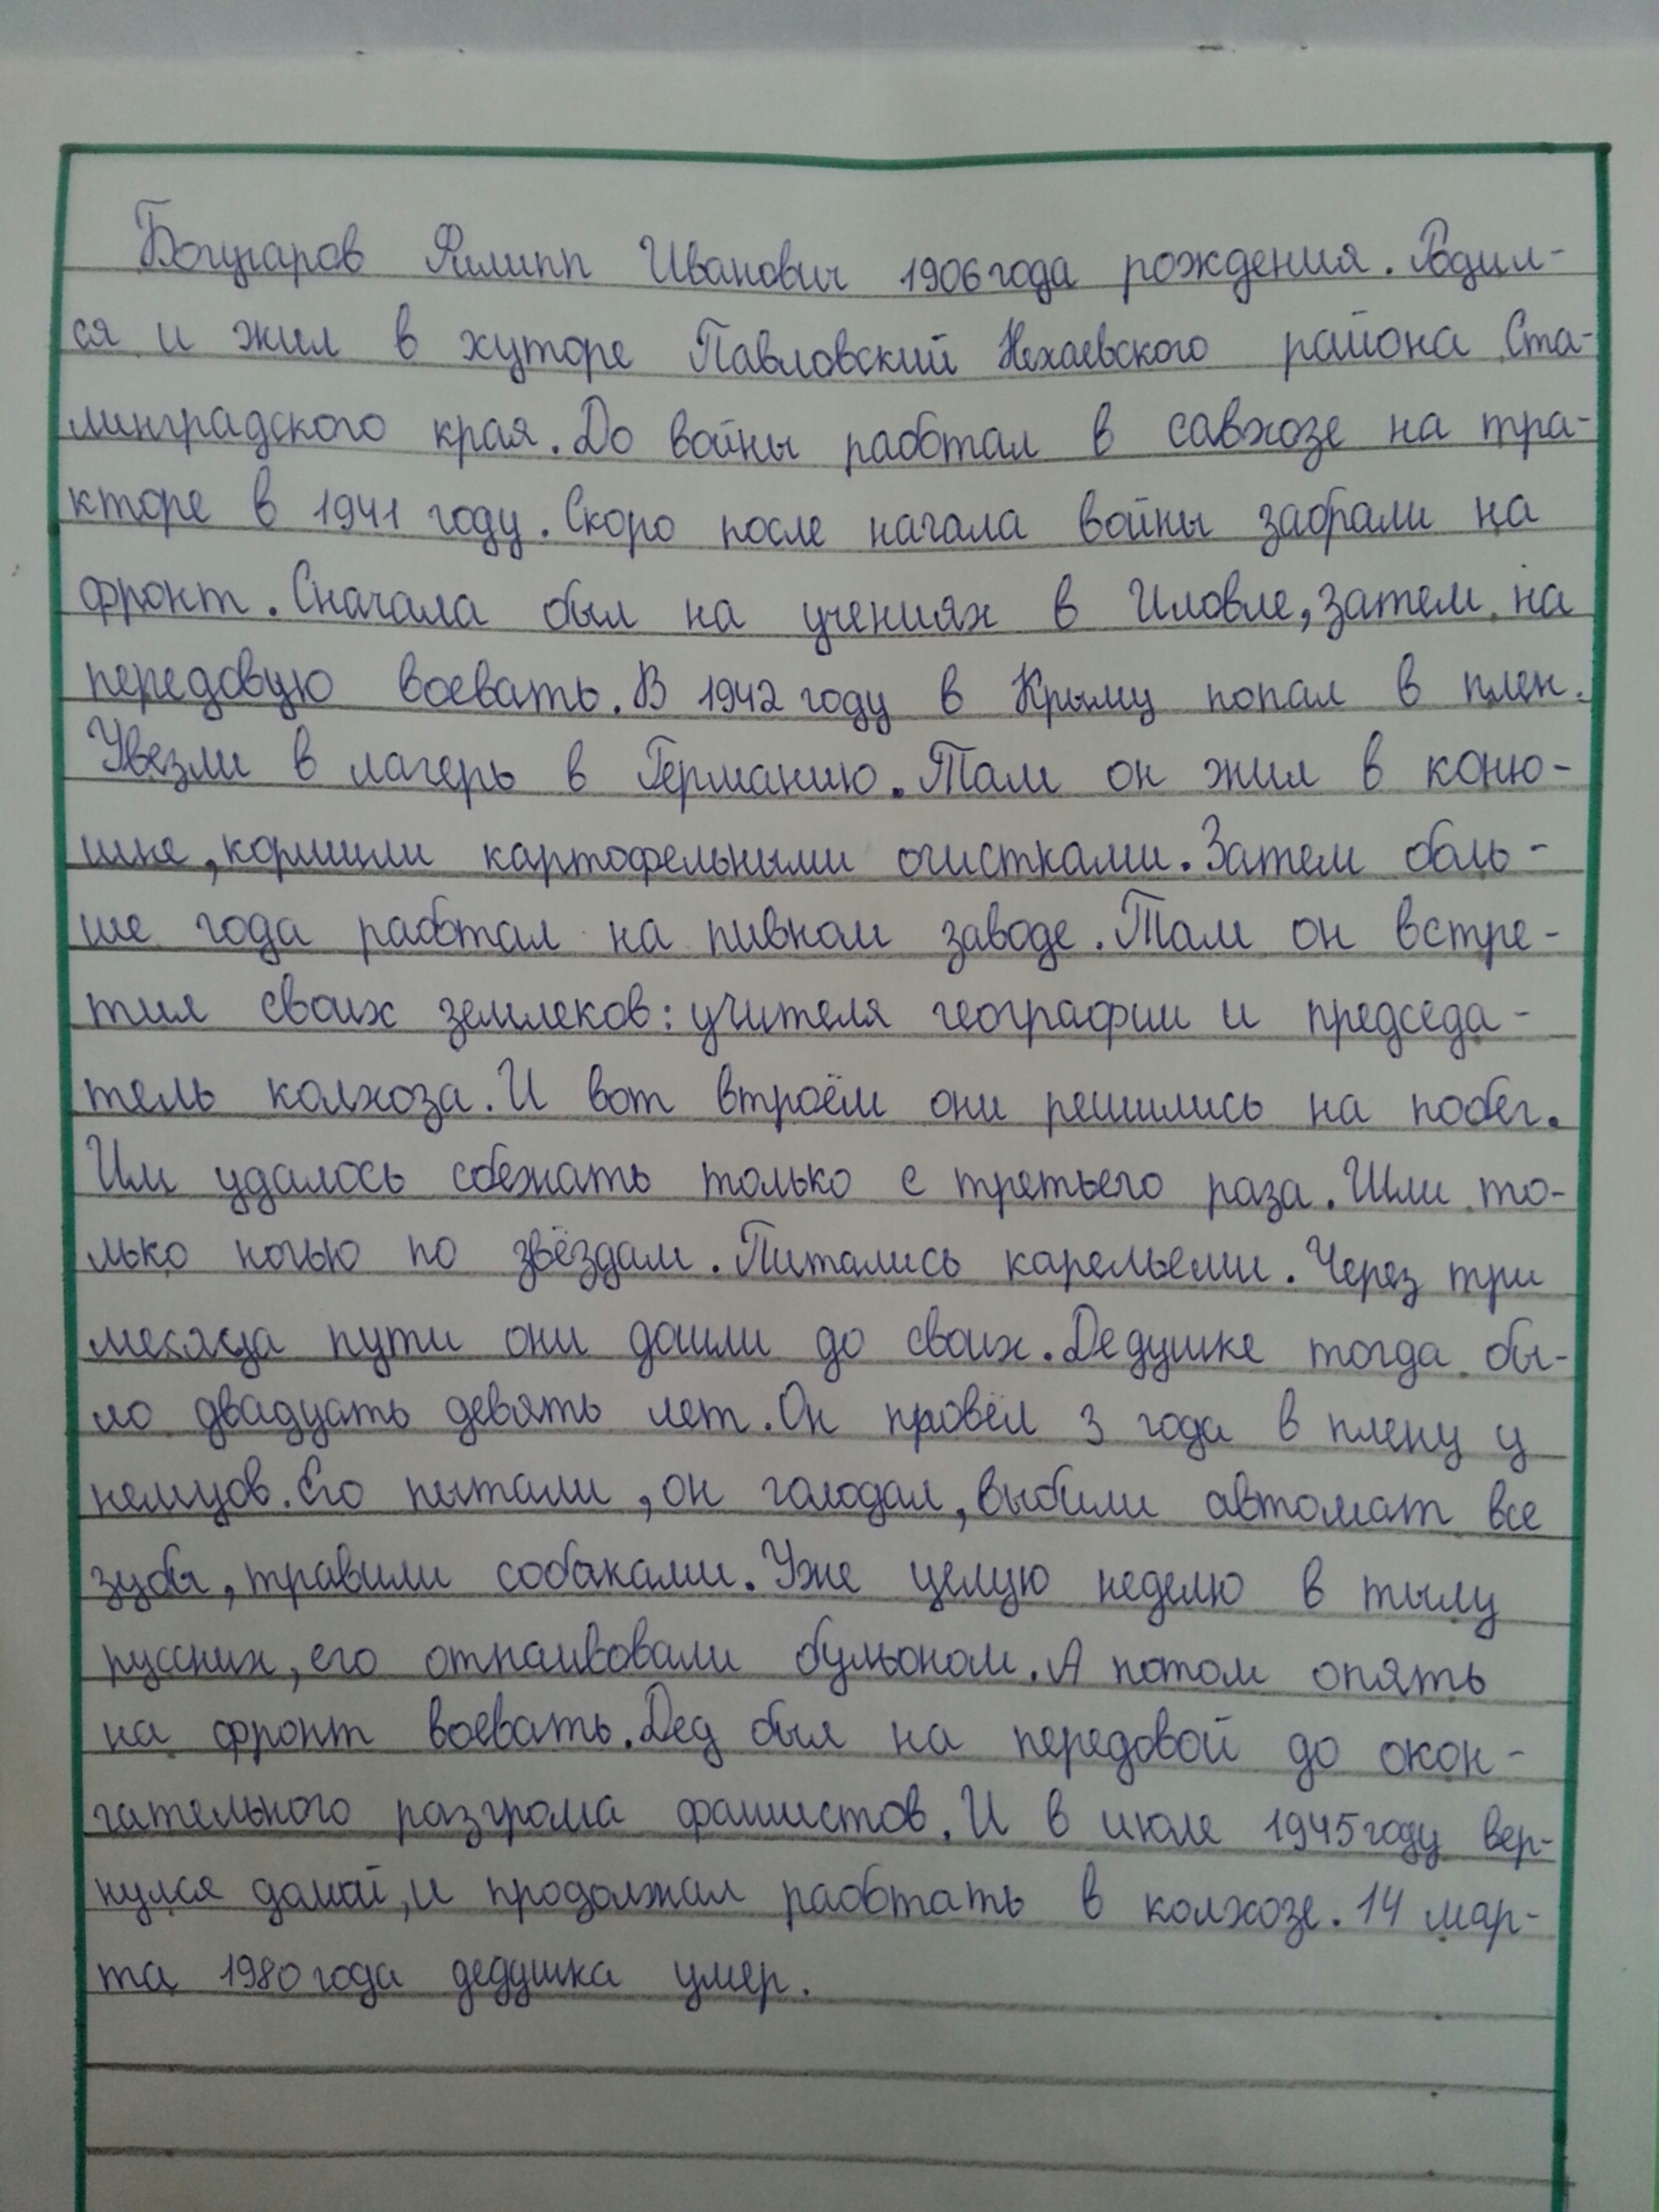 Богучаров Филипп Иванович 1906 года рождения. Родил-
ся и жил в хуторе Павловский Нехаевского района Ста-
линградского края. До войны работал в савхозе на тра-
кторе в 1941 году. Скоро после начала войны забрали на
фронт. Сначала был на учениях в Иловле, затем на
передовую воевать. В 1942 году в Крыму попал в плен.
Увезли в лагерь в Германию. Там он жил в коню-
шне, кормили картофельными очистками. Затем боль-
ше года работал на пивном заводе. Там он встре-
тил своих землеков: учителя географии и председа-
тель колхоза. И вот втроём они решились на побег.
Им удалось сбежать только с третьего раза. Шли то-
лько ночью по звёздам. Питались карельеми. Через три
месяца пути они дошли до своих. Дедушке тогда бы-
ло двадцать девять лет. Он провёл 3 года в плену у
немцов. Его пытали, он голодал, выбили автомат все
зубы, травили собаками. Уже целую неделю в тылу
русских, его отпаивовали бульоном. А потом опять
на фронт воевать. Дед был на передовой до окон-
чательного разгрома фашистов. И в июле 1945 году вер-
нулся домой, и продолжал работать в колхозе. 14 мар-
та 1980 года дедушка умер.